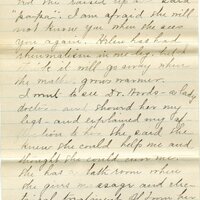 "papa". I am afraid she will
not know you when she sees
you again. Helen has had
rheumatism in
it will go away when
the weather grows warmer.
I went to see Dr. Woods - a lady
doctor - and showed her my
legs - and explained my
to her, she said she
knew she could help me and
thought she could cure me.
She has a bath room where
she gives massage and elec-
trical treatment